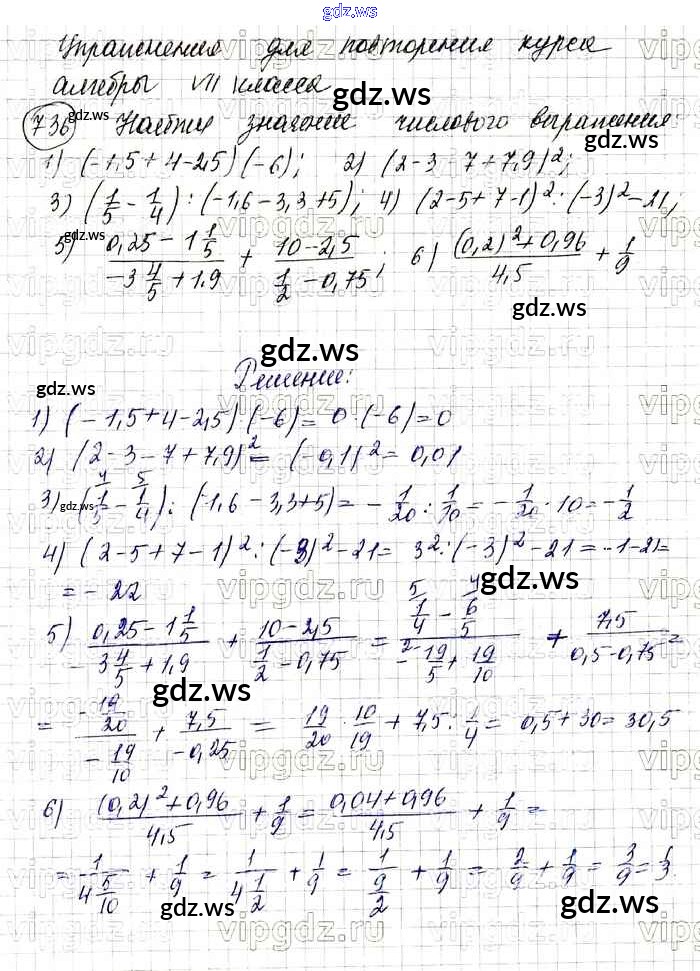 gdz.ws
Упражнения для повторения курса
алгебры VII класса
736 Найти значение числового выражения:
1) (-1,5+4-2,5)(-6); 2) (2-3-7+7,9)²;
3) (1/5 - 1/4) : (-1,6-3,3+5); 4) (2-5+7-1)² : (-3)²-21;
5) (0,25-1 1/5)/(-3 4/5+1,9) + (10-2,5)/(1/2-0,75); 6) ((0,2)²+0,96)/4,5 + 1/9
Решение:
1) (-1,5+4-2,5)·(-6)=0·(-6)=0
2) (2-3-7+7,9)²=(-0,1)²=0,01
3) (1/5 - 1/4) : (-1,6-3,3+5)= -1/20 : 1/10 = -1/20 · 10 = -1/2
4) (2-5+7-1)² : (-3)²-21= 3² : (-3)²-21=-1-21=
=-22
5) (0,25-1 1/5)/(-3 4/5+1,9) + (10-2,5)/(1/2-0,75) = (1/4 - 6/5)/(-19/5+19/10) + 7,5/(0,5-0,75)=
= (-19/20)/(-19/10) + 7,5/(-0,25) = 19/20 · 10/19 + 7,5 : 1/4 = 0,5+30=30,5
6) ((0,2)²+0,96)/4,5 + 1/9 = (0,04+0,96)/4,5 + 1/9 =
= 1/(4 5/10) + 1/9 = 1/(4 1/2) + 1/9 = 1/(9/2) + 1/9 = 2/9 + 1/9 = 3/9 = 1/3.